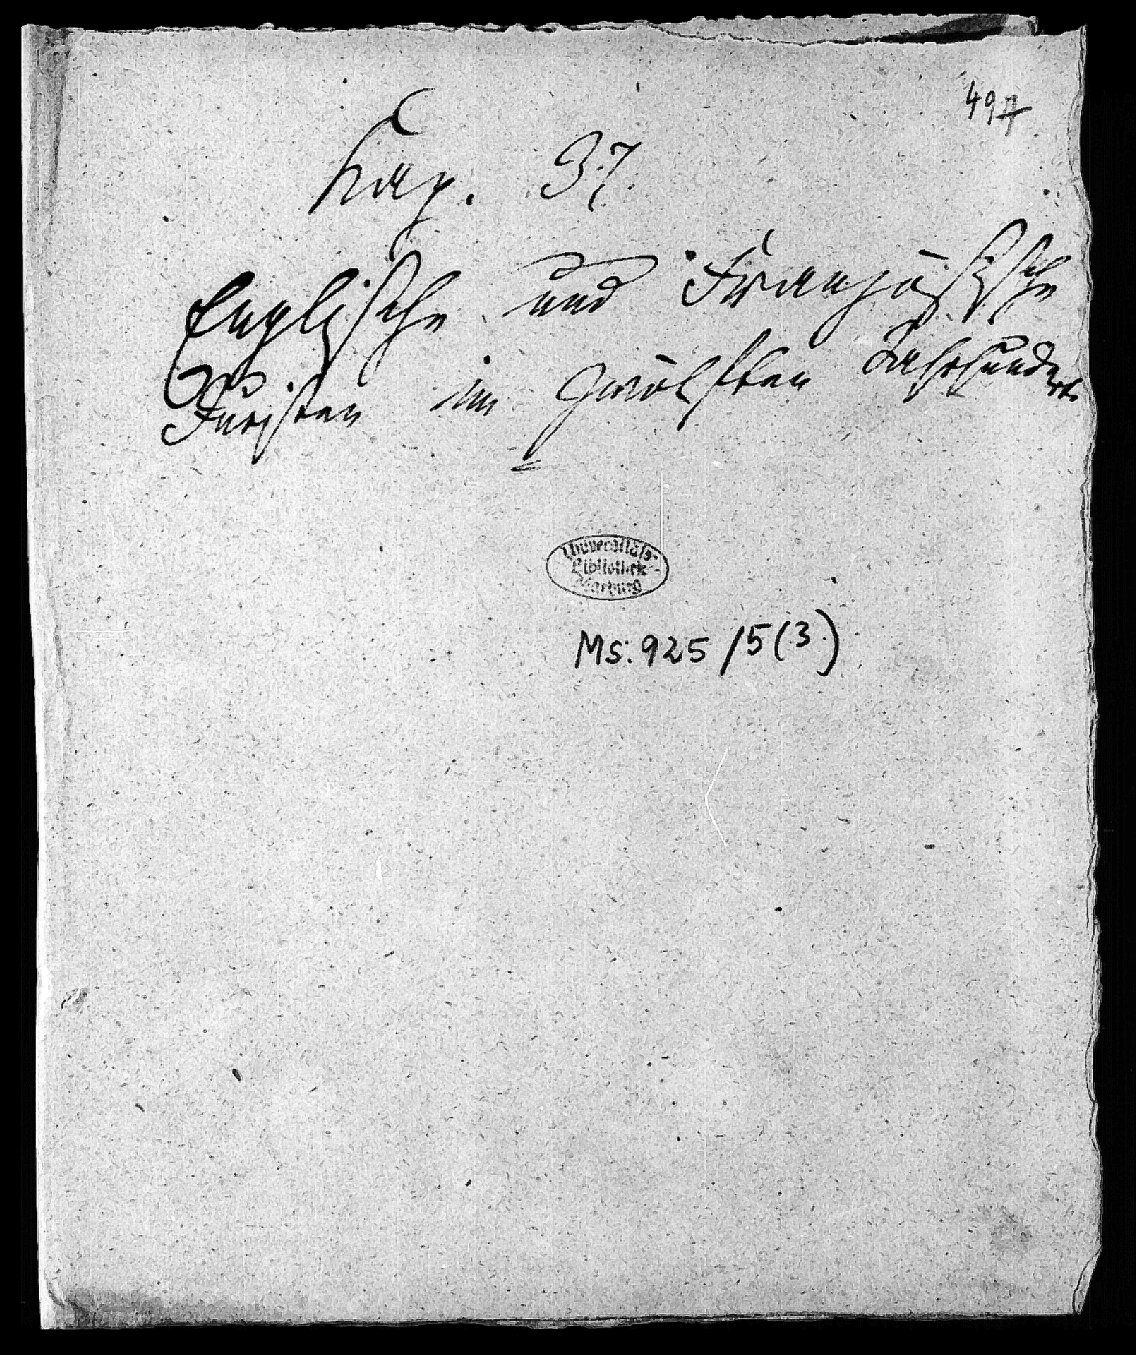 497
Kap. 37.
Englische und Französische
Juristen im zwölften Jahrhundert.
Universitäts-
Bibliothek
Marburg
Ms. 925/5(3)